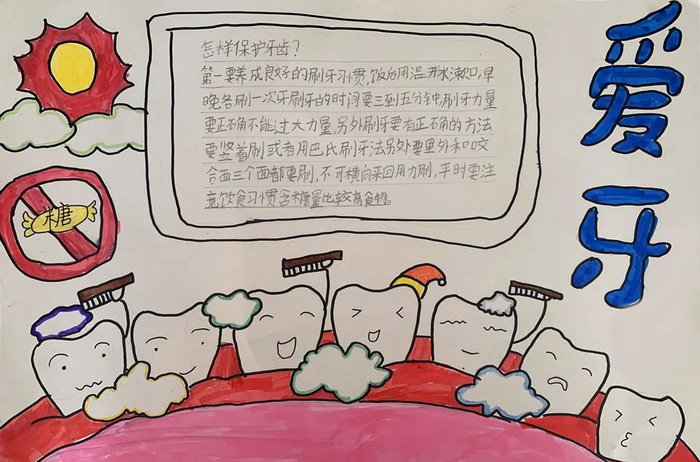 爱牙
怎样保护牙齿？
第一要养成良好的刷牙习惯,饭后用温开水漱口,早
晚各刷一次牙刷牙的时间要三到五分钟,刷牙力量
要正确不能过大力量,另外刷牙要有正确的方法
要竖着刷或者用巴氏刷牙法另外要里外和咬
合面三个面都要刷,不可横向来回用力刷,平时要注
意饮食习惯含糖量比较高食物。
糖